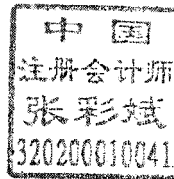 中国
注册会计师
张彩斌
320200010041